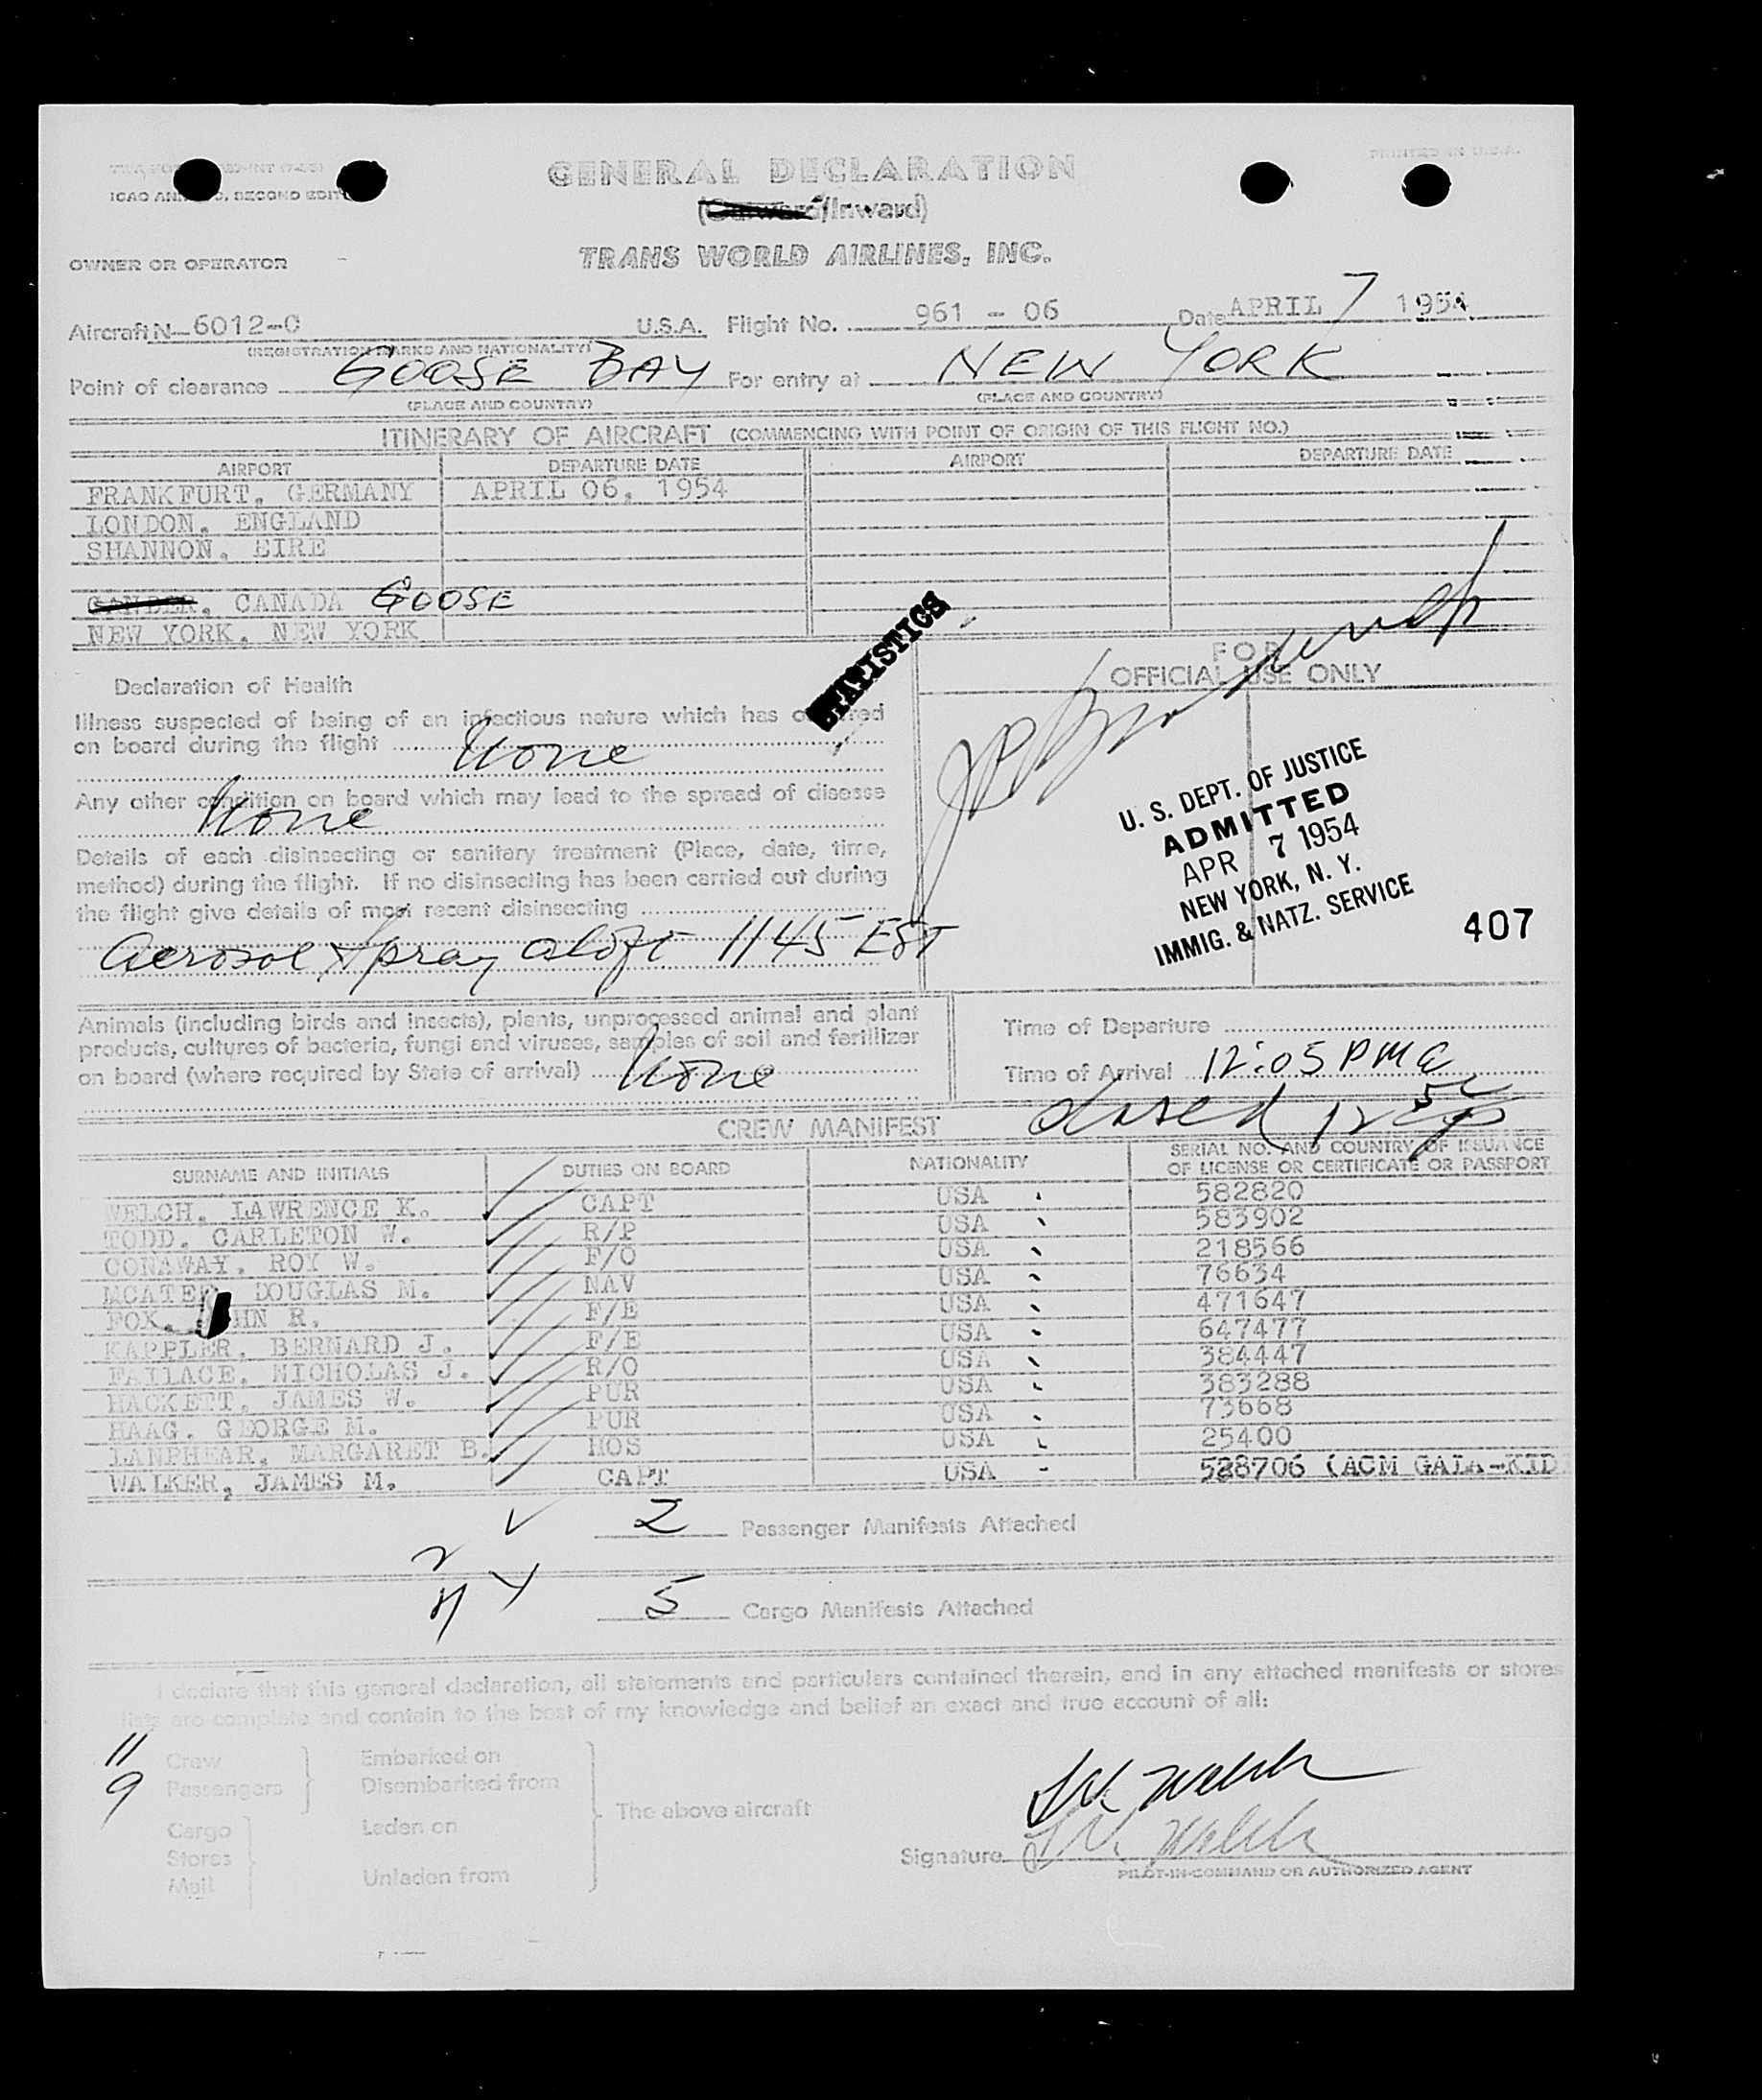 PRINTED IN U.S.A.
GENERAL DECLARATION
(Outward/Inward)
TRANS WORLD AIRLINES, INC.
OWNER OR OPERATOR
Aircraft N-6012-C U.S.A. Flight No. 961 - 06 Date APRIL 7 1954
(REGISTRATION MARKS AND NATIONALITY)
Point of clearance GOOSE BAY For entry at NEW YORK
(PLACE AND COUNTRY) (PLACE AND COUNTRY)
ITINERARY OF AIRCRAFT (COMMENCING WITH POINT OF ORIGIN OF THIS FLIGHT NO.)
AIRPORT DEPARTURE DATE AIRPORT DEPARTURE DATE
FRANKFURT, GERMANY APRIL 06, 1954
LONDON, ENGLAND
SHANNON, EIRE
GANDER, CANADA GOOSE
NEW YORK, NEW YORK
STATISTICS
FOR
OFFICIAL USE ONLY
Declaration of Health
Illness suspected of being of an infectious nature which has occurred
on board during the flight None
Any other condition on board which may lead to the spread of disease
None
Details of each disinsecting or sanitary treatment (Place, date, time,
method) during the flight. If no disinsecting has been carried out during
the flight give details of most recent disinsecting
Aerosol Spray aloft 1145 EST
U. S. DEPT. OF JUSTICE
ADMITTED
APR 7 1954
NEW YORK, N. Y.
IMMIG. & NATZ. SERVICE
407
Animals (including birds and insects), plants, unprocessed animal and plant
products, cultures of bacteria, fungi and viruses, samples of soil and fertilizer
on board (where required by State of arrival) None
Time of Departure
Time of Arrival 12:05 PM
closed 12
CREW MANIFEST
SURNAME AND INITIALS DUTIES ON BOARD NATIONALITY SERIAL NO. AND COUNTRY OF ISSUANCE
OF LICENSE OR CERTIFICATE OR PASSPORT
WELCH, LAWRENCE K. CAPT USA 582820
TODD, CARLETON W. R/P USA 583902
CONAWAY, ROY W. F/O USA 218566
MCATEE, DOUGLAS M. NAV USA 76634
FOX, R. F/E USA 471647
KAPPLER, BERNARD J. F/E USA 647477
FAILACE, NICHOLAS J. R/O USA 384447
HACKETT, JAMES W. PUR USA 383288
HAAG, GEORGE M. PUR USA 73668
LANPHEAR, MARGARET B. HOS USA 25400
WALKER, JAMES M. CAPT USA 528706 (ACM GALA-KID
2 Passenger Manifests Attached
5 Cargo Manifests Attached
I declare that this general declaration, all statements and particulars contained therein, and in any attached manifests or stores
lists are complete and contain to the best of my knowledge and belief an exact and true account of all:
11 Crew Embarked on
9 Passengers Disembarked from
The above aircraft
Cargo Laden on
Stores
Mail Unladen from
L.K. Welch
Signature L.K. Welch
PILOT-IN-COMMAND OR AUTHORIZED AGENT